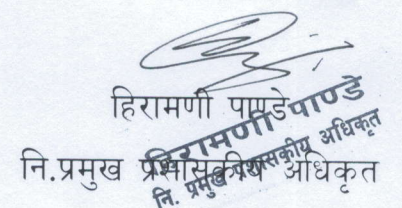 हिरामणी पाण्डे
नि.प्रमुख प्रशासकीय अधिकृत
हिरामणी पाण्डे
नि. प्रमुख प्रशासकीय अधिकृत